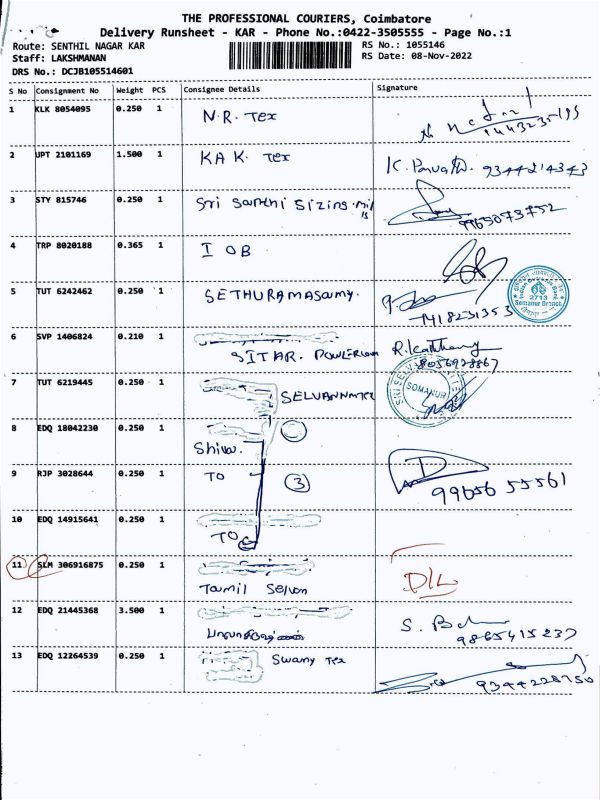 THE PROFESSIONAL COURIERS, Coimbatore
Delivery Runsheet - KAR - Phone No.:0422-3505555 - Page No.:1
Route: SENTHIL NAGAR KAR
RS No.: 1055146
Staff: LAKSHMANAN
RS Date: 08-Nov-2022
DRS No.: DCJB105514601
S No Consignment No Weight PCS Consignee Details Signature
1 KLK 8054095 0.250 1 N.R. Tex
2 UPT 2101169 1.500 1 KAK Tex 9344214343
3 STY 815746 0.250 1 Sri Santhi Sizing Mills
9965073752
4 TRP 8020188 0.365 1 I OB
2713
Somanur Branch
5 TUT 6242462 0.250 1 SETHURAMASamy.
6 SVP 1406824 0.210 1
SITAR. POWERLoom
8056928867
7 TUT 6219445 0.250 1
SOMANUR
8 EDQ 18042230 0.250 1
Shiva.
9 RJP 3028644 0.250 1 TO 3 D
99656 55561
10 EDQ 14915641 0.250 1
TO
11 SLM 306916875 0.250 1
Tamil Selvan
D/L
12 EDQ 21445368 3.500 1
9865415237
13 EDQ 12264539 0.250 1 Swamy Tex
9344228750